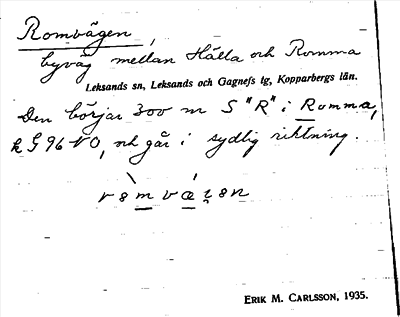 Romvägen,
byväg mellan Hälla och Romma
Leksands sn, Leksands och Gagnefs tg, Kopparbergs län.
Den börjar 300 m S "R" i Romma,
k G 96 NO, och går i sydlig riktning.
ERIK M. CARLSSON, 1935.